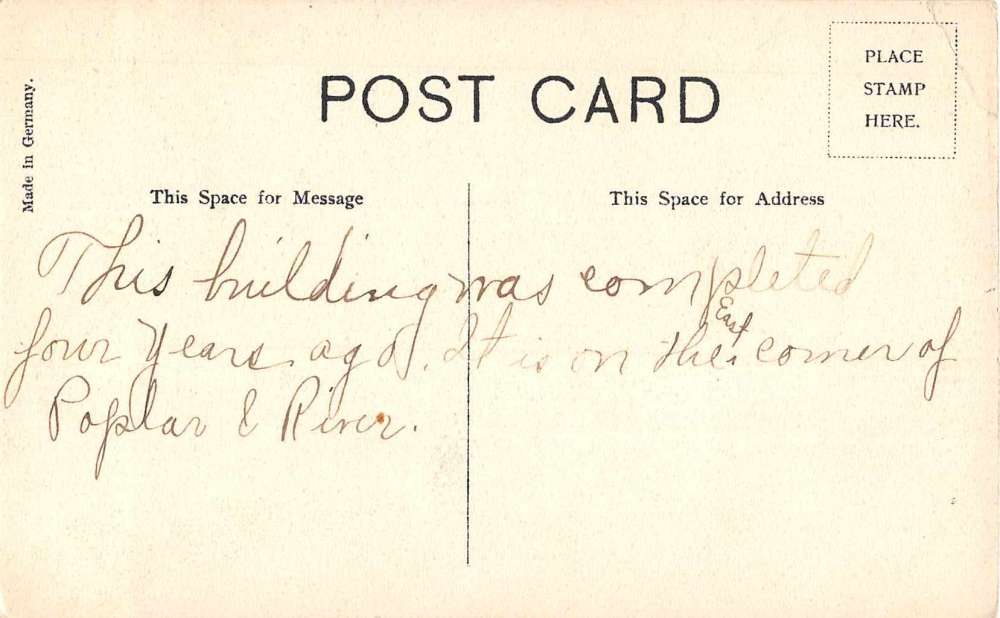 PLACE
STAMP
HERE.
POST CARD
Made in Germany.
This Space for Message
This Space for Address
This building was completed
four years ago. It is on the East corner of
Poplar & River.